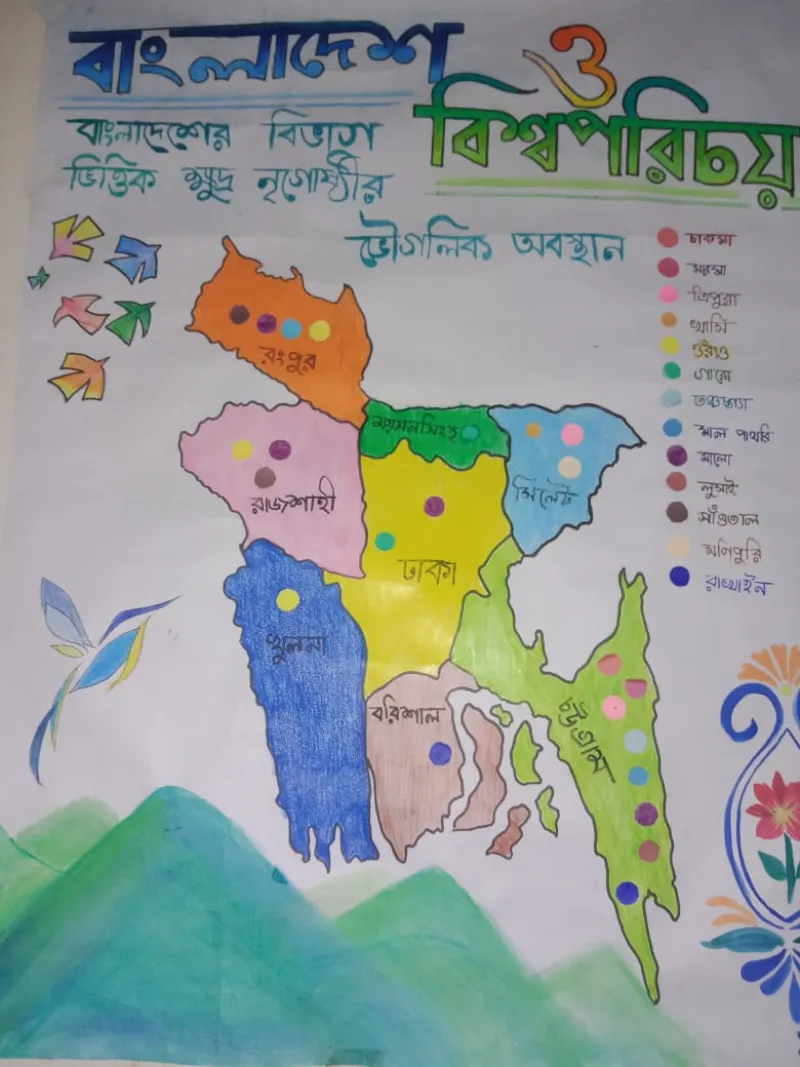 বাংলাদেশ ও
বিশ্বপরিচয়
বাংলাদেশের বিভাগ
ভিত্তিক ক্ষুদ্র নৃগোষ্ঠীর
ভৌগলিক অবস্থান
চাকমা
মারমা
ত্রিপুরা
খাসি
ওঁরাও
গারো
তঞ্চঙ্গ্যা
মাল পাহাড়ি
মালো
লুসাই
সাঁওতাল
মনিপুরি
রাখাইন
রংপুর
ময়মনসিংহ
সিলেট
রাজশাহী
ঢাকা
খুলনা
বরিশাল
চট্টগ্রাম